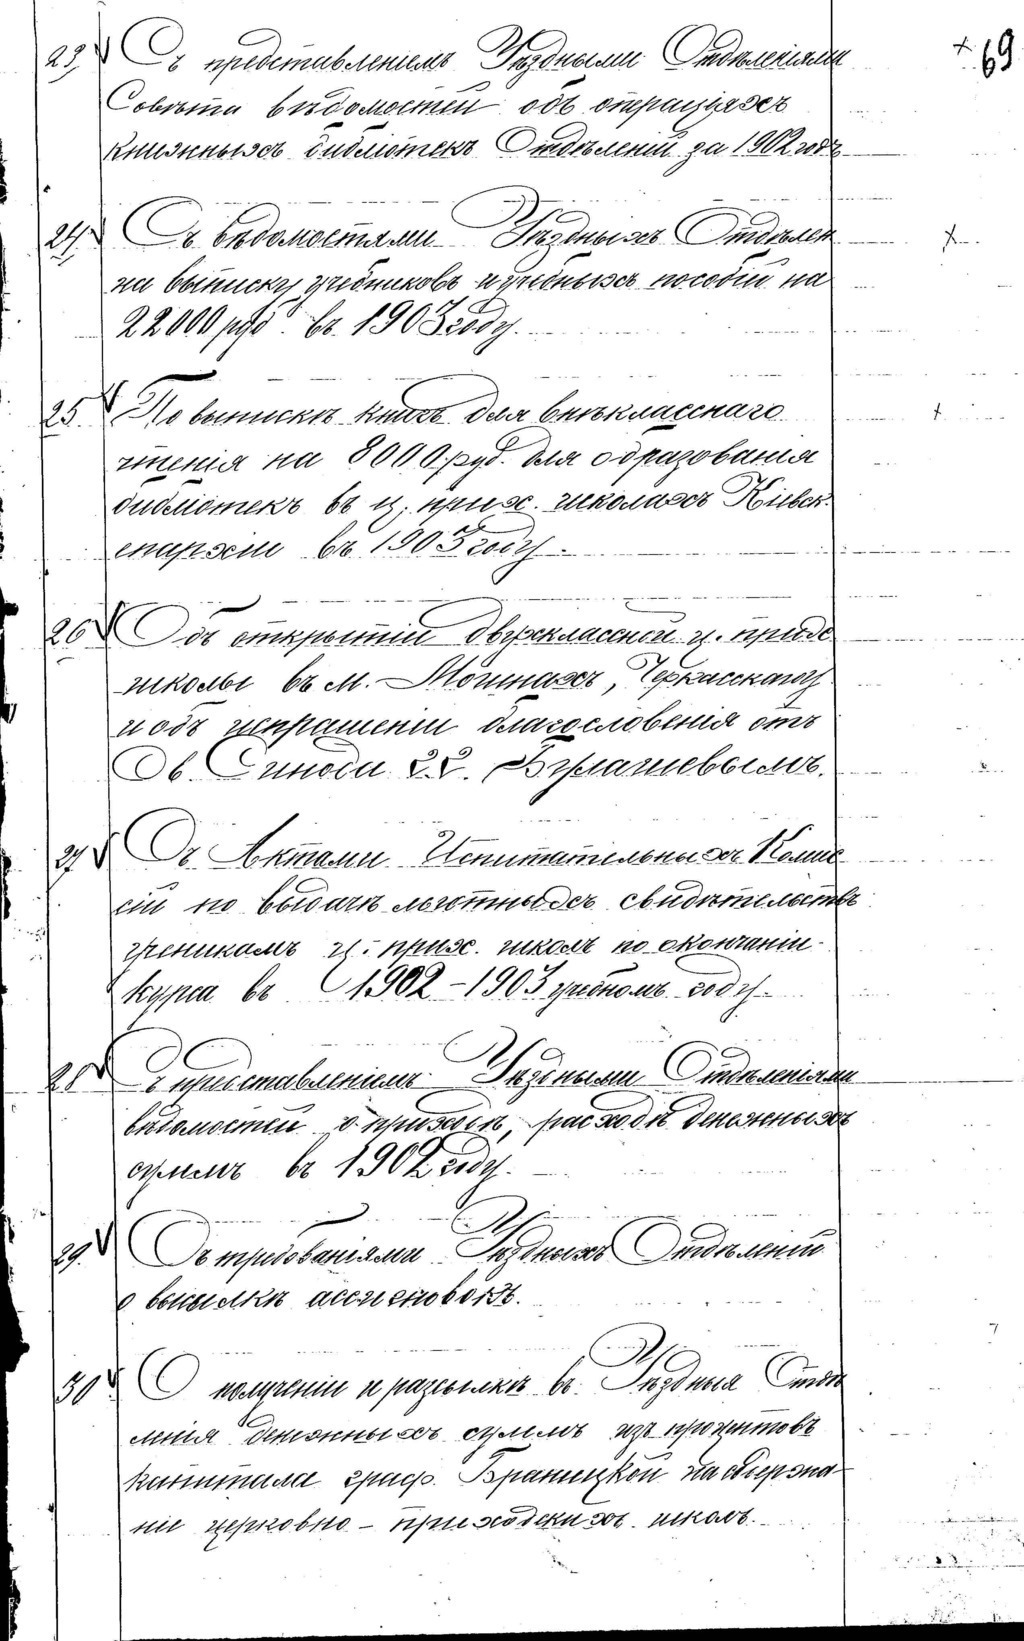 69
23. Съ представленіемъ Уѣздными Отдѣленіями
Совѣта вѣдомостей объ операціяхъ
книжныхъ библіотекъ Отдѣленій за 1902 годъ
24. Съ вѣдомостями Уѣздныхъ Отдѣлен
на выписку учебниковъ и учебныхъ пособій на
22000 руб. въ 1903 году.
25. По выпискѣ книгъ для внѣкласснаго
чтенія на 8000 руб. для образованія
библіотекъ въ ц. прих. школахъ Кіевск.
епархіи въ 1903 году.
26 Объ открытіи двухклассной ц. прих
школы въ м. Мошнахъ, Черкасскаго у
и объ испрашеніи благословенія отъ
Св. Синода г.г. Бурлашевымъ.
27 Съ Актами Испытательныхъ Комис
сій по выдачѣ льготныхъ свидѣтельствъ
ученикамъ ц. прих. школъ по окончаніи
курса въ 1902-1903 учебномъ году.
28 Съ представленіемъ Уѣздными Отдѣленіями
вѣдомостей о приходѣ, расходѣ денежныхъ
суммъ въ 1902 году.
29. Съ требованіями Уѣздныхъ Отдѣленій
о высылкѣ ассигновокъ.
30 О полученіи и разсылкѣ въ Уѣздныя Отдѣ
ленія денежныхъ суммъ изъ процентовъ
капитала граф. Браницкой на содержа-
ніе церковно-приходскихъ школъ.